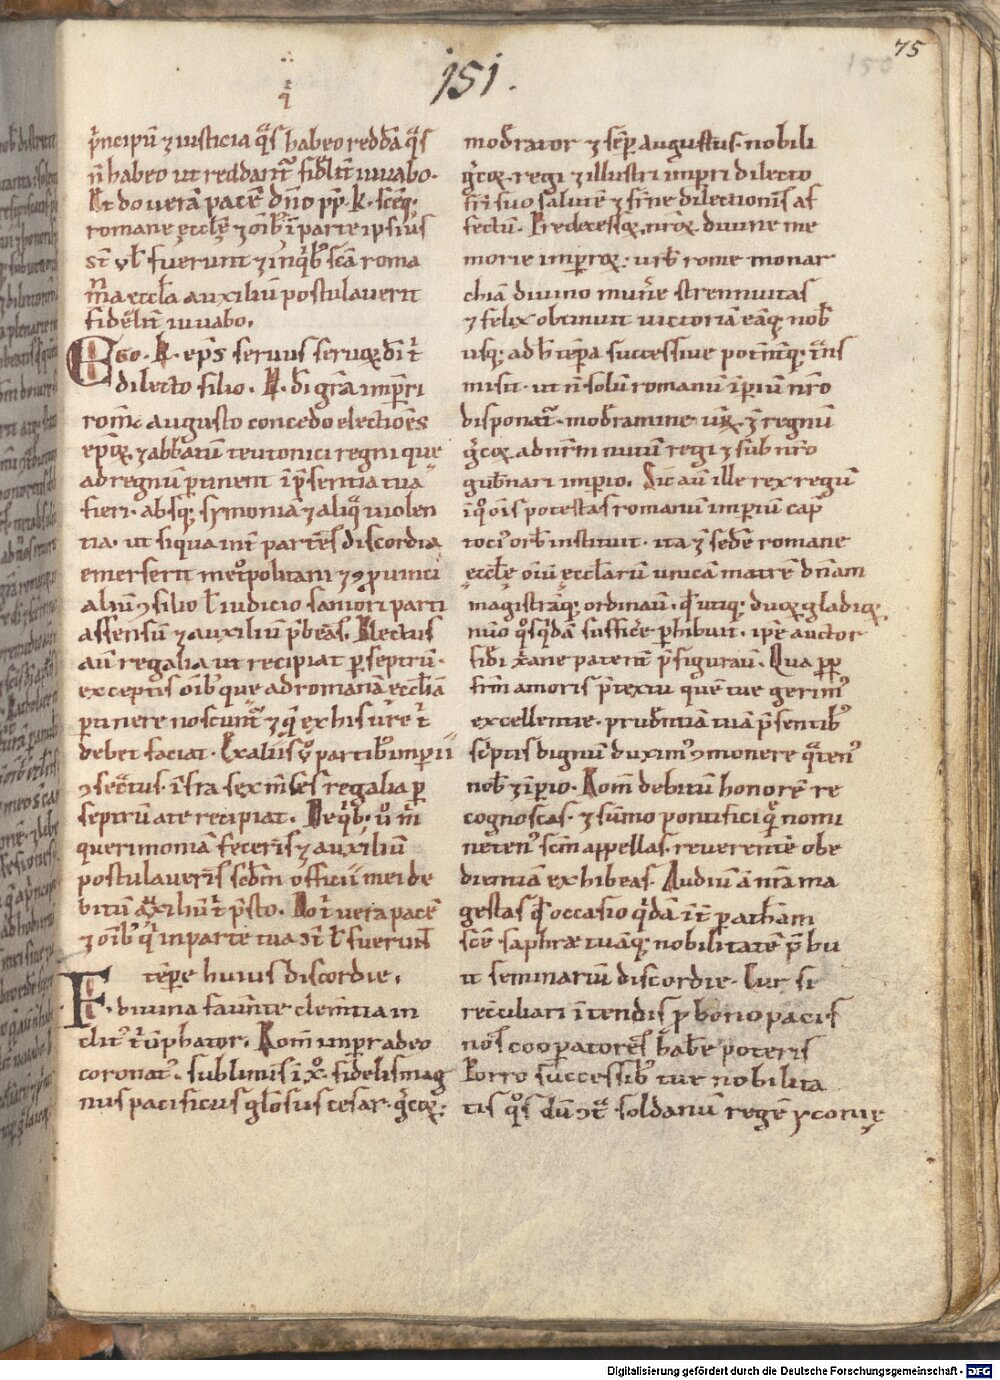 75
150
151.
p̄ncipū ⁊ iusticia q̄s habeo reddā q̄s
n̄ habeo ut reddant᷑ fidelit̄ iuuabo.
Et do uerā pacē dn̄o pp̄. k. scēq;
romane ęccłę ⁊ oīb; ī parte ipsius
st̄ ł fuerunt ⁊ inq̄b; sc̄a roma
n̄a eccła auxiliū postulauerit
fidelit̄ iuuabo.
Ego. k. ep̄s seruus seruoꝝ dī t̄
dilecto filio. h. dī gr̄a imp̄ri
rom̄ augusto concedo electiōes
ep̄oꝝ ⁊ abbatū teutonici regni que
ad regnū ꝑtinent ī p̄sentia tua
fieri. absq; symonia ⁊ aliq̄ uiolen
tia. ut siqua int̄ partes discordia
emerserit metropolitani ⁊ ꝯꝓuinci
aliū ꝯsilio ł iudicio saniori parti
assensū ⁊ auxiliū p̄beas. Electus
aū regalia ut recipiat ꝑ septrū.
exceptis oīb; que ad romanā ecclīā
ꝑtinere noscunt᷑ ⁊ q̄ ex his iure t̄
debet faciat. Ex aliis ū partib; imperii
ꝯsecr̄tus. īfra sex mēses regalia ꝑ
septrū a te recipiat. De qb; ū m̄
querimoniā feceris ⁊ auxiliū
postulaueris scd̄m officii mei de
bitū auxiliū t̄ p̄sto. Do t̄ uerā pacē
⁊ oīb; q̄ in parte tua st̄ ł fuerunt
tēpe huius discordie.
F. diuina fauente clemītia in
clit' t̄ūphator. Rom̄ imperator a deo
coronat'. sublimis ī xō. fidelis mag
nus pacificus gl̄osus cesar. gr̄coꝝ.
mod̄rator ⁊ sēp augustus. nobili
gr̄coꝝ. regi ⁊ illustri imp̄ri dilecto
fr̄i suo salutē ⁊ fr̄ne dilectionis af
fectū. Predecessoꝝ nr̄oꝝ diuine me
morie imp̄roꝝ. urb̄ rome monar
chiā diuino mun̄e strennuitas
⁊ felix obtinuit uictoriā eāq; nob̄
usq; ad h̄ tēpa successiue potn̄tq; t̄ns
misit. ut n̄ solū romanū īperiū nr̄o
disponat᷑. mod̄ramine uꝝ. ⁊ regnū
gr̄coꝝ ad nr̄m nutū regi ⁊ sub nr̄o
gub̄nari imperio. Sic aū ille rex regū
ī qo oīs potestas romanū imperiū cap̄
toci' orb̄ instituit. ita ⁊ sedē romane
ęccłę oiū ęccłarū unicā matrē dn̄am
magistrāq; ordinauit. q̄d utiq; duoꝝ gladioꝝ
nūo q̄s q̄dā suffic̄e ꝑhibuit. ipse auctor
fidei x̄ane patent̄ p̄figurauit. Qua pp̄
fr̄ni amoris p̄textu quē tue gerim'
excellentie. prudentiā tuā p̄sentib;
sc̄ptis dignū duxim' ꝯmonere q̄ten'
nob̄ ⁊ īperio. Rom̄ debitū honorē re
cognoscas. ⁊ sūmo pontifici q̄ nomi
neten' scm̄ appellas. reuerentē obe
dientiā exhibeas. Audiuit ā nr̄a ma
gestas q̄d occasio q̄dā īt̄ patr̄ham
sc̄e saphie tuāq; nobilitatē p̄bu
it seminariū discordie. Cur si
recūliari ītendis ꝓ bono pacis
nos̄ cooꝑatores hab̄e poteris
Porro successib; tue nobilita
tis q̄s dū ꝯt̄ soldanū regē yconię
Digitalisierung gefördert durch die Deutsche Forschungsgemeinschaft - DFG